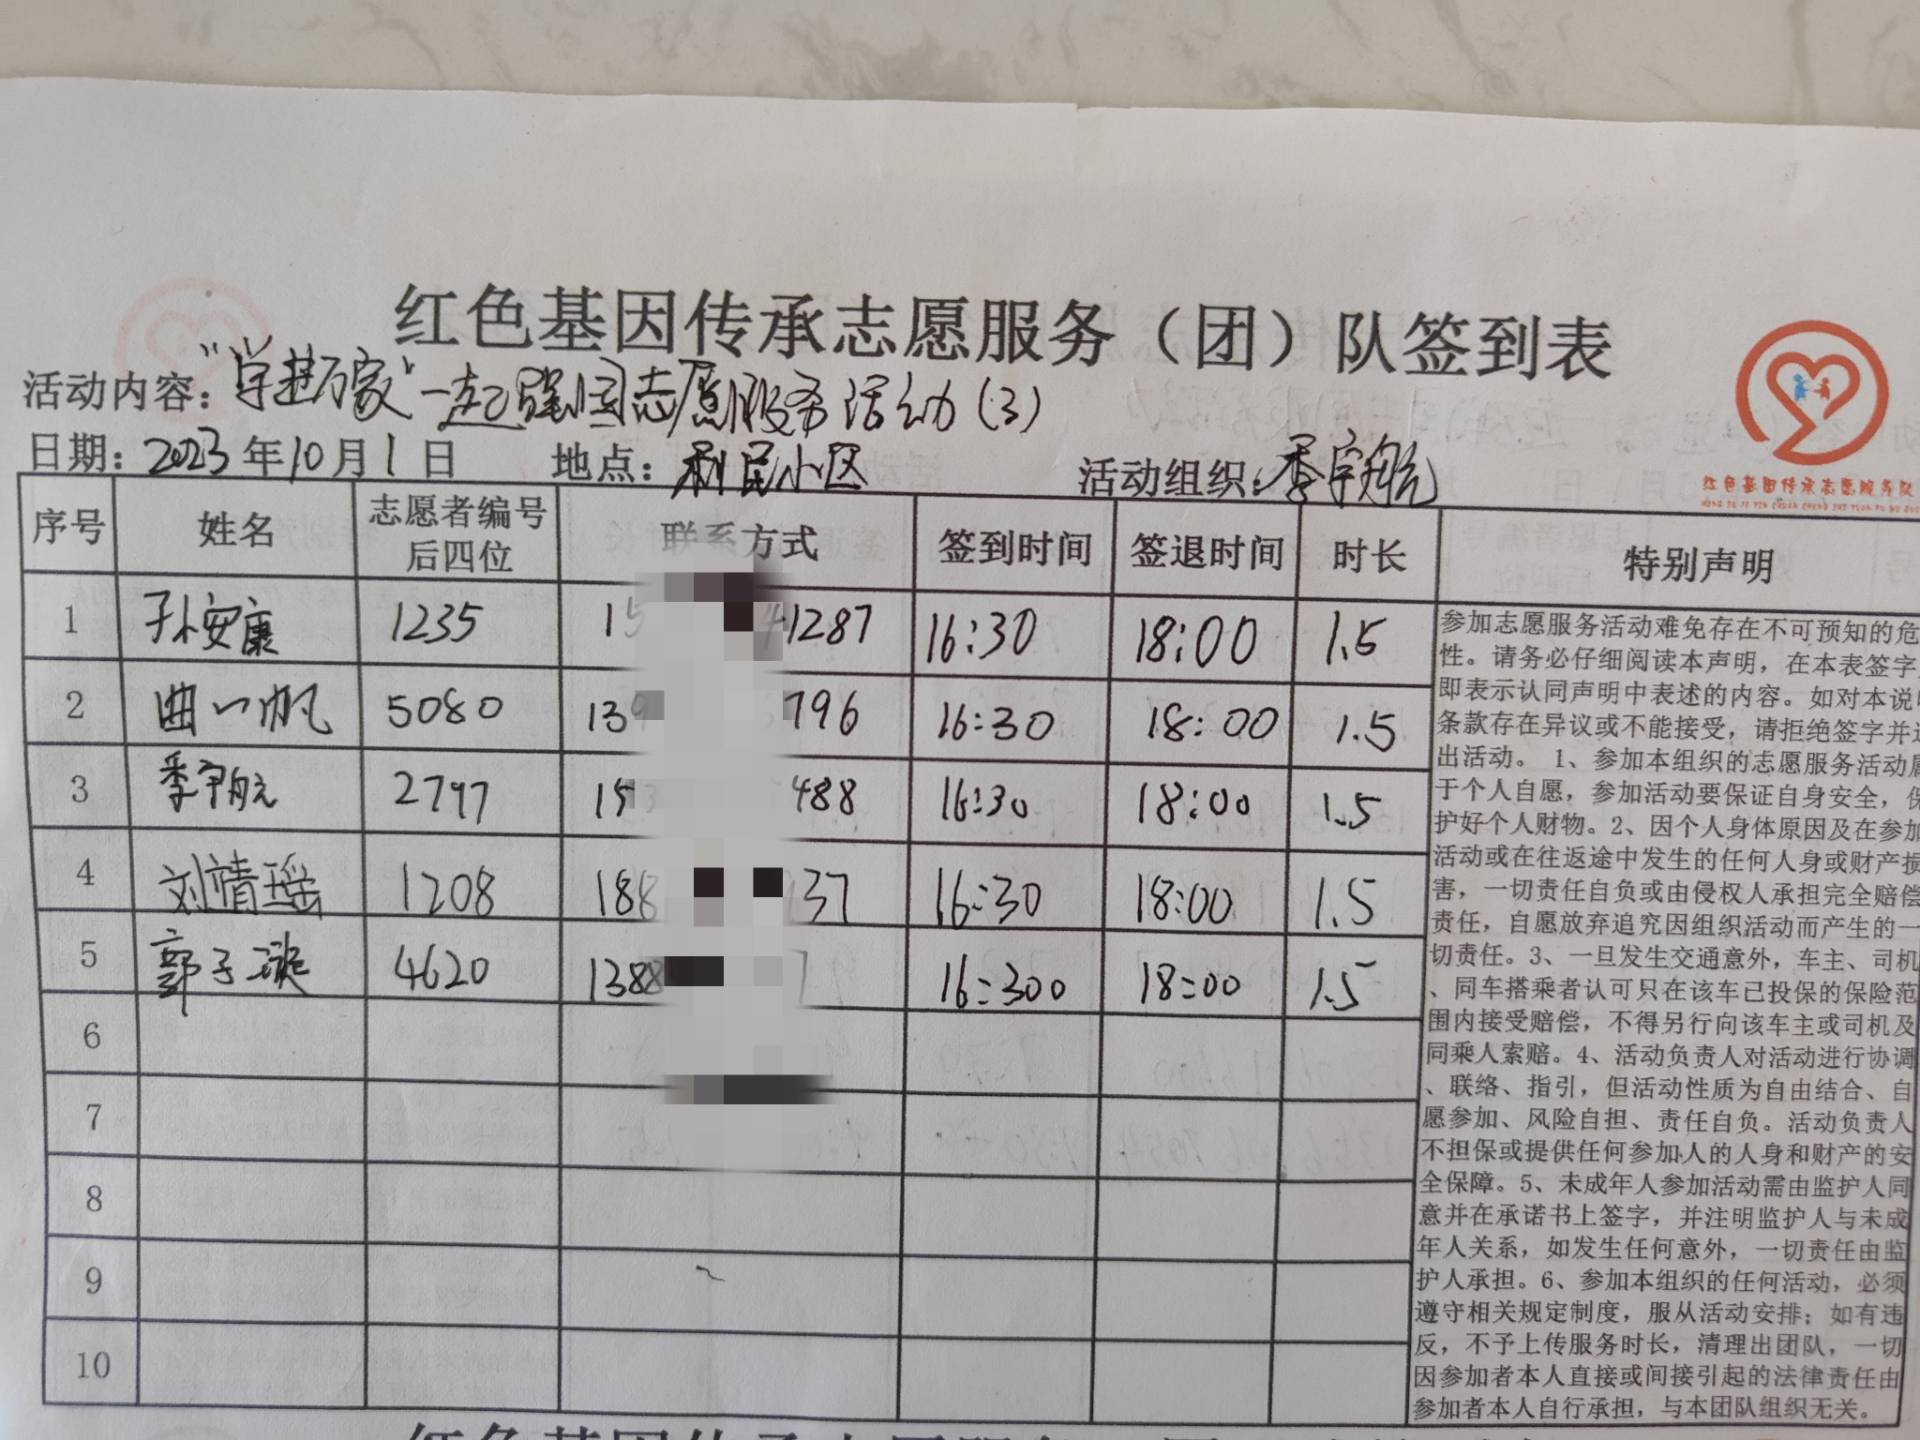 红色基因传承志愿服务（团）队签到表
活动内容："学进万家"一起强国志愿服务活动(3)
日期：2023年10月1日 地点：利民小区 活动组织：季宇航
红色基因传承志愿服务队
序号 姓名 志愿者编号后四位 联系方式 签到时间 签退时间 时长 特别声明
1 孙安康 1235 15 41287 16:30 18:00 1.5
2 曲一帆 5080 139 796 16:30 18:00 1.5
3 季宇航 2797 153 488 16:30 18:00 1.5
4 刘靖瑶 1208 188 937 16:30 18:00 1.5
5 郭子漩 4620 1388 7 16:300 18:00 1.5
6
7
8
9
10
参加志愿服务活动难免存在不可预知的危
性。请务必仔细阅读本声明，在本表签字
即表示认同声明中表述的内容。如对本说明
条款存在异议或不能接受，请拒绝签字并退
出活动。 1、参加本组织的志愿服务活动属
于个人自愿，参加活动要保证自身安全，保
护好个人财物。2、因个人身体原因及在参加
活动或在往返途中发生的任何人身或财产损
害，一切责任自负或由侵权人承担完全赔偿
责任，自愿放弃追究因组织活动而产生的一
切责任。3、一旦发生交通意外，车主、司机
、同车搭乘者认可只在该车已投保的保险范
围内接受赔偿，不得另行向该车主或司机及
同乘人索赔。4、活动负责人对活动进行协调
、联络、指引，但活动性质为自由结合、自
愿参加、风险自担、责任自负。活动负责人
不担保或提供任何参加人的人身和财产的安
全保障。5、未成年人参加活动需由监护人同
意并在承诺书上签字，并注明监护人与未成
年人关系，如发生任何意外，一切责任由监
护人承担。6、参加本组织的任何活动，必须
遵守相关规定制度，服从活动安排；如有违
反，不予上传服务时长，清理出团队，一切
因参加者本人直接或间接引起的法律责任由
参加者本人自行承担，与本团队组织无关。